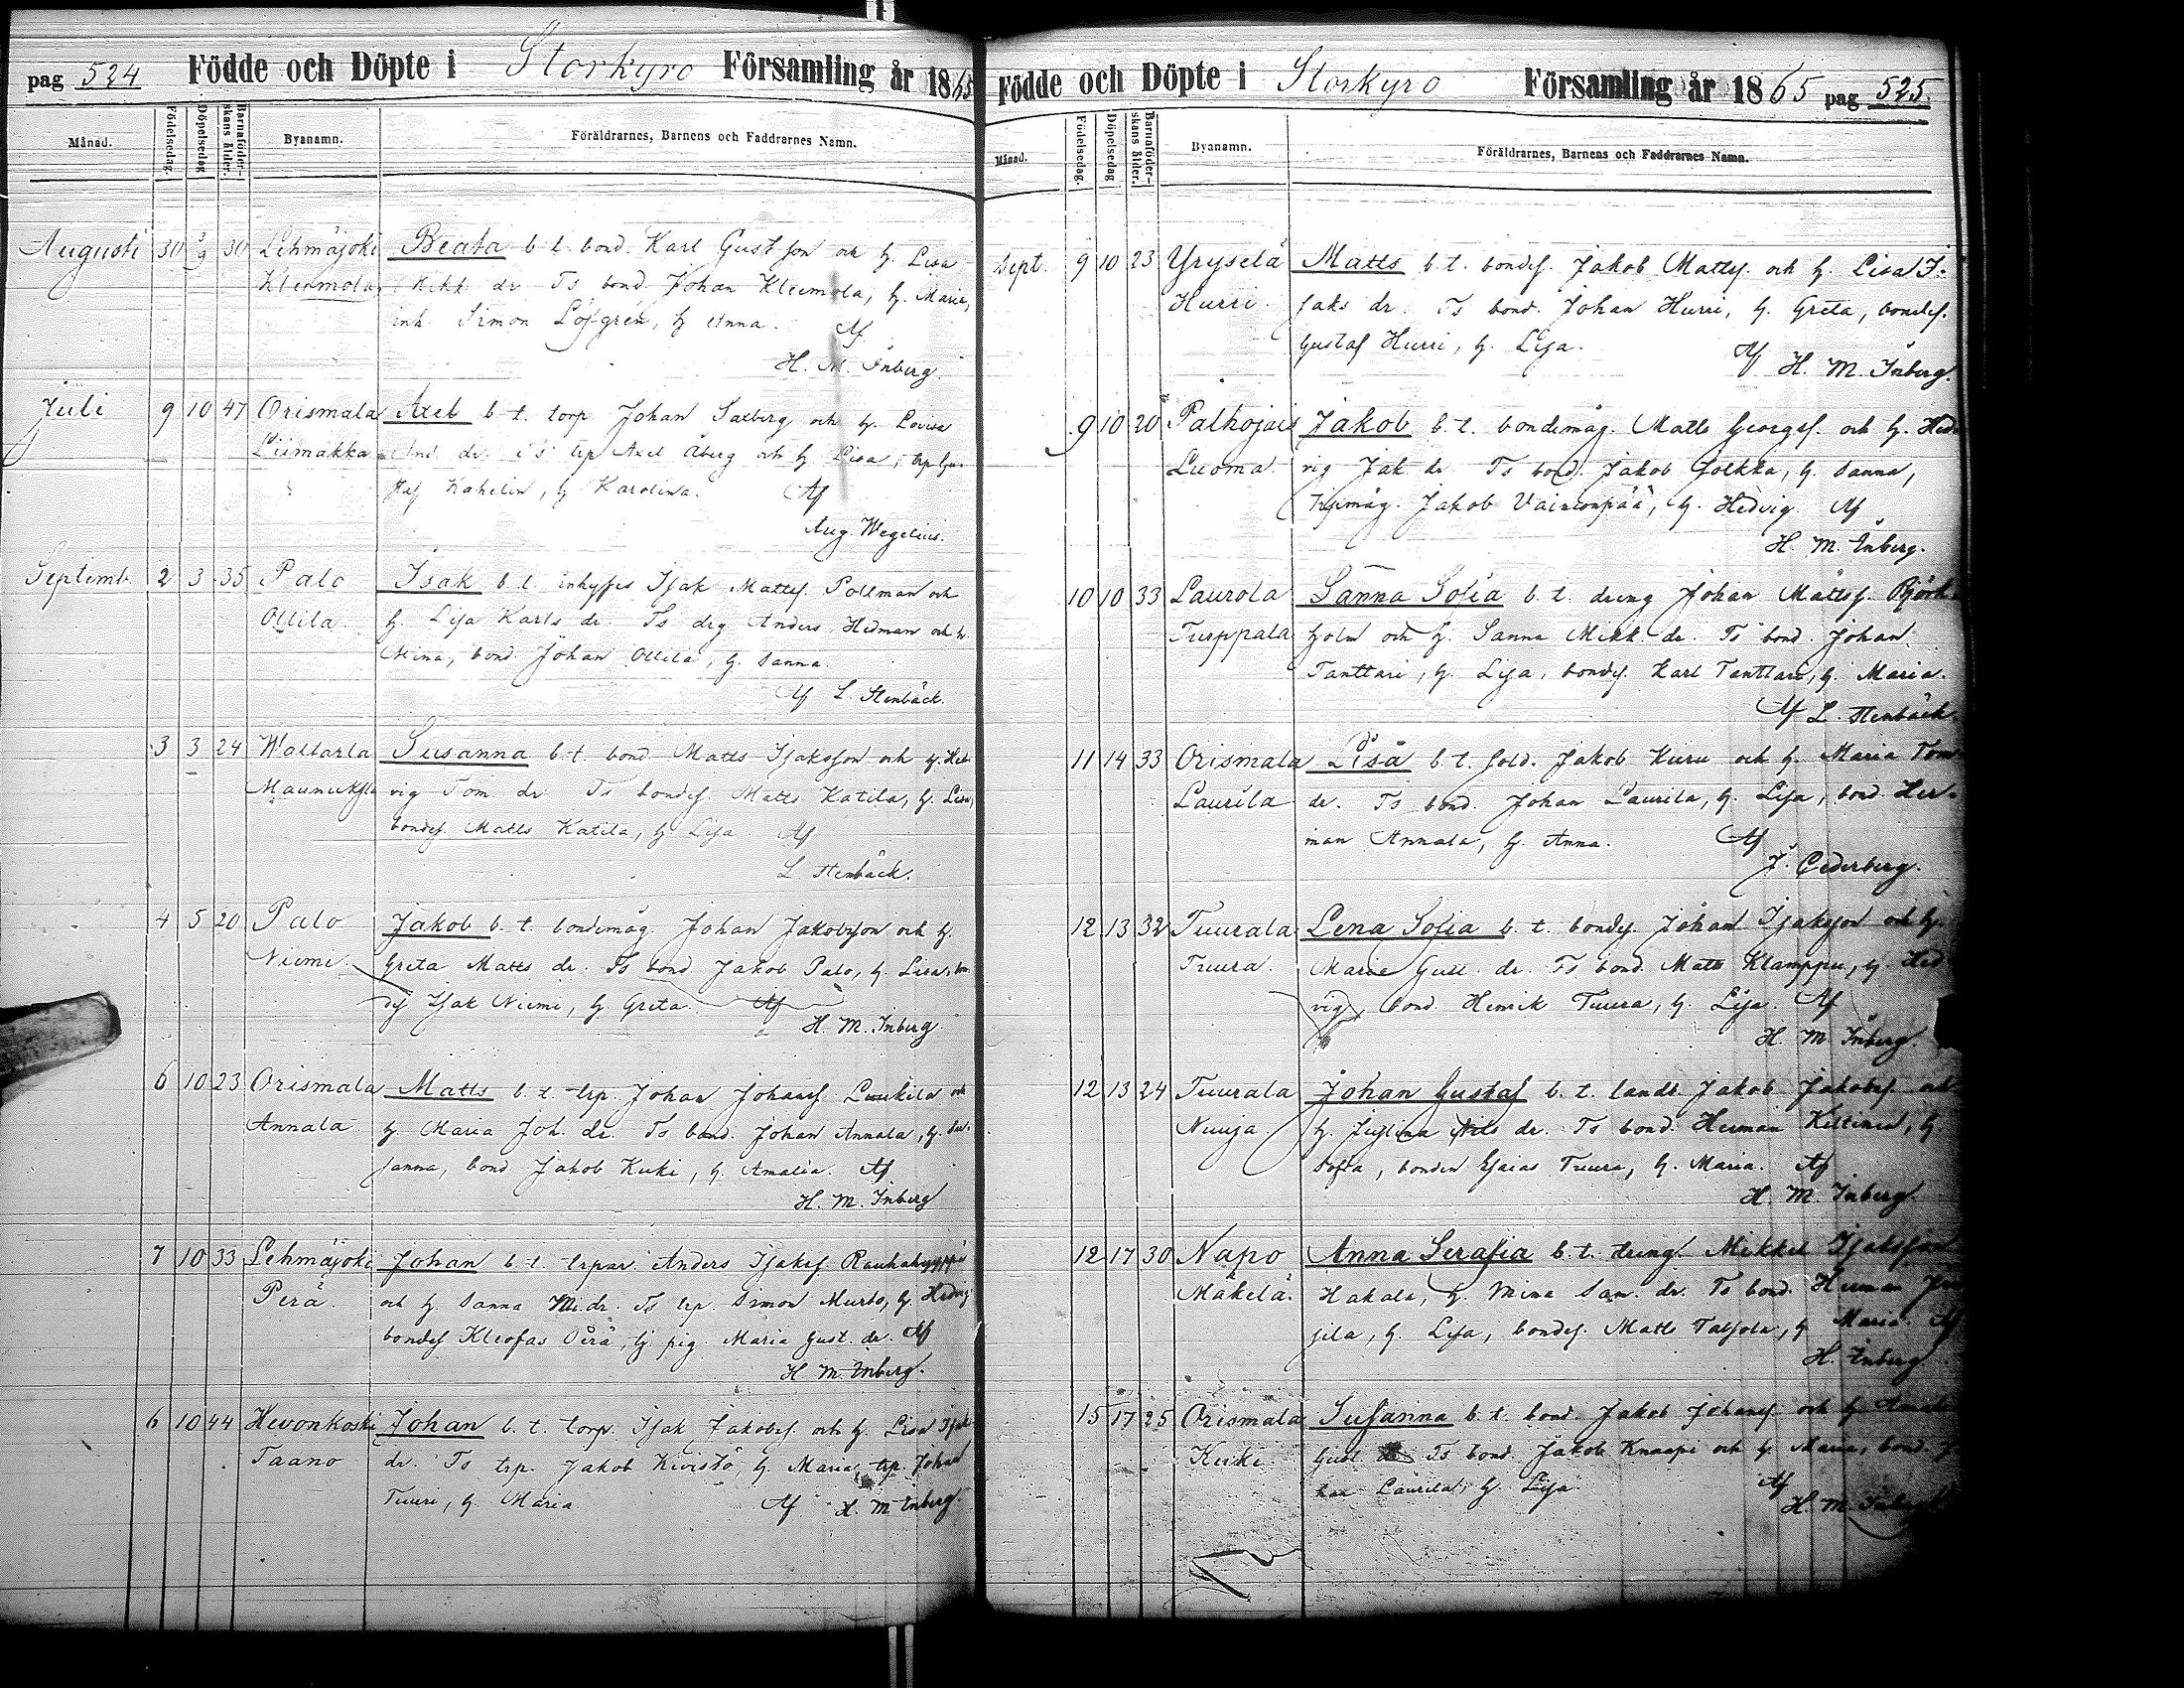 pag 524 Födde och Döpte i Storkyro Församling år 1865
Månad. Födelsedag. Döpelsedag Barnaföderskans ålder. Byanamn. Föräldrarnes, Barnens och Faddrarnes Namn.
Augusti 30 3/9 30 Lehmäjoki Beata b. t. bond. Karl Gustfson och h. Lisa
Kleemola Mikk. dr Ts bond. Johan Kleemola, h. Maria,
inh. Simon Löfgren, h Anna. Af
H. M. Inberg.
Juli 9 10 47 Orismala Axel b. t. torp. Johan Saxberg och h. Lovisa
Liimakka And. dr. Ts trp Axel Åberg och h. Lisa, trp Gu-
staf Kahelin, h Karolina. Af
Aug. Wegelius.
Septemb. 2 3 35 Palo Isak b. t. inhyses Isak Mattss. Pollman och
Ollila. h. Lisa Karls dr. Ts drg Anders Hedman och h.
Mina, bond. Johan Ollila, h. Sanna.
Af L. Stenbäck.
3 3 24 Waltarla Susanna b. t. bond. Matts Isaksson och h. Hed-
Maunuksela vig Tom. dr Ts bondes. Matts Katila, h. Lisa,
bondes. Matts Katila, h Lisa Af
L. Stenbäck.
4 5 20 Palo Jakob b. t. bondemåg Johan Jakobsson och h.
Niemi Greta Matts dr. Ts bond Jakob Palo, h. Lisa, bon-
des Isak Niemi, h Greta. Af
H. M. Inberg
6 10 23 Orismala Matts b. t. trp. Johan Johanss. Luukila och
Annala h. Maria Joh. dr. Ts bond. Johan Annala, h. Su-
sanna, bond Jakob Kuki, h. Amalia. Af
H. M. Inberg
7 10 33 Lehmäjoki Johan b. t. trpar. Anders Isakss.
Perä. och h. Sanna Mi. dr. Ts trp. Simon Murto, h. Hedvig
bondes Kleofas Perä, h pig. Maria Gust. dr. Af
H M. Inberg.
6 10 44 Hevonkoski Johan b. t. torp. Isak Jakobss. och h. Lisa Isaks
Taano dr. Ts trp. Jakob Kivistö, h. Maria, trp. Johan
Tuuri, h. Maria Af H. M. Inberg.
Födde och Döpte i Storkyro Församling år 1865 pag 525
Månad. Födelsedag. Döpelsedag Barnaföderskans ålder. Byanamn. Föräldrarnes, Barnens och Faddrarnes Namn.
Sept. 9 10 23 Yryselä Matts b. t. bondes. Jakob Mattss. och h. Lisa I-
Hurri saks dr. Ts bond. Johan Hurri, h. Greta, bondes.
Gustaf Hurri, h. Lisa. Af H. M. Inberg.
9 10 20 Palhojais Jakob b. t. bondemåg. Matts Georgss. och h. Hed-
Luoma. vig Jak. dr Ts bond. Jakob Jolkka, h. Sanna,
Jakob Vainionpää, h. Hedvig. Af
H. M. Inberg.
10 10 33 Laurola Sanna Sofia b. t. dreng Johan Mattss. Björk-
Turppala holm och h. Sanna Mikk. dr. Ts bond. Johan
Tanttari, h. Lisa, bondes. Karl Tanttari, h. Maria.
Af L. Stenbäck.
11 14 33 Orismala Lisa b. t. sold. Jakob Kuru och h. Maria Tom
Laurila dr. Ts bond. Johan Laurila, h. Lisa, bond. Her-
man Annala, h. Anna. Af
J. Cederberg.
12 13 32 Tuurala Lena Sofia b. t. bondes. Johan Isaksson och h.
Tuura. Maria Gust. dr. Ts bond. Matts Klamppu, h. Hed-
vig, bond. Henrik Tuura, h. Lisa. Af
H. M. Inberg.
12 13 24 Tuurala Johan Gustaf b. t. landb. Jakob Jakobss. och
Nuuja. h. Justina Nils dr. Ts bond. Herman Kiltinen, h.
Sofia, bonden Esaias Tuura, h. Maria. Af
H. M. Inberg
12 17 30 Napo Anna Serafia b. t. dreng. Mikkel Isaksson
Mäkelä. Hakala, h. Mina Sam. dr. Ts bond. Herman
jila, h. Lisa, bondes. Matts Talsola, h Maria. Af
H. Inberg
15 17 25 Orismala Susanna b. t. bond. Jakob Johanss. och h. Amalia
Kuki Gust. Ts bond. Jakob Knaapi och h. Maria, bond. Jo-
han Laurila, h. Lisa. Af
H. M. Inberg